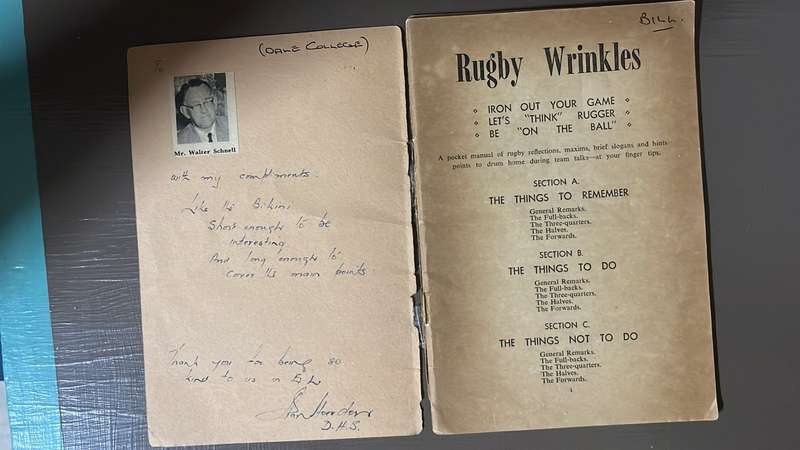 (DALE COLLEGE)
Mr. Walter Schnell
with my compliments.
Like the Bikini
Short enough to be
interesting
And long enough to
cover the main points
Thank you for being so
kind to us in E.L.
D.H.S.
BILL.
Rugby Wrinkles
IRON OUT YOUR GAME
LET'S "THINK" RUGGER
BE "ON THE BALL"
A pocket manual of rugby reflections, maxims, brief slogans and hints
points to drum home during team talks—at your finger tips.
SECTION A.
THE THINGS TO REMEMBER
General Remarks.
The Full-backs.
The Three-quarters.
The Halves.
The Forwards.
SECTION B.
THE THINGS TO DO
General Remarks.
The Full-backs.
The Three-quarters.
The Halves.
The Forwards.
SECTION C.
THE THINGS NOT TO DO
General Remarks.
The Full-backs.
The Three-quarters.
The Halves.
The Forwards.